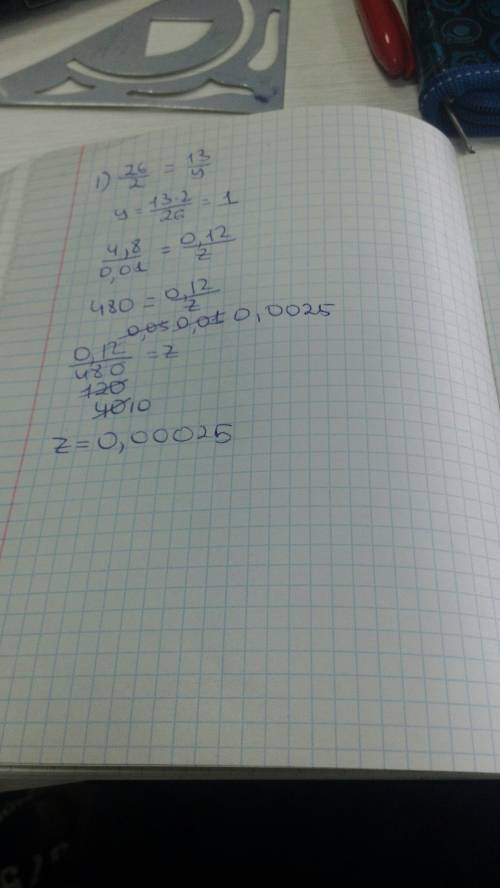 1) 26/2 = 13/y
y = 13·2/26 = 1
4,8/0,01 = 0,12/z
480 = 0,12/z
0,05 0,01 0,0025
0,12/480 = z
120
40 10
z = 0,00025